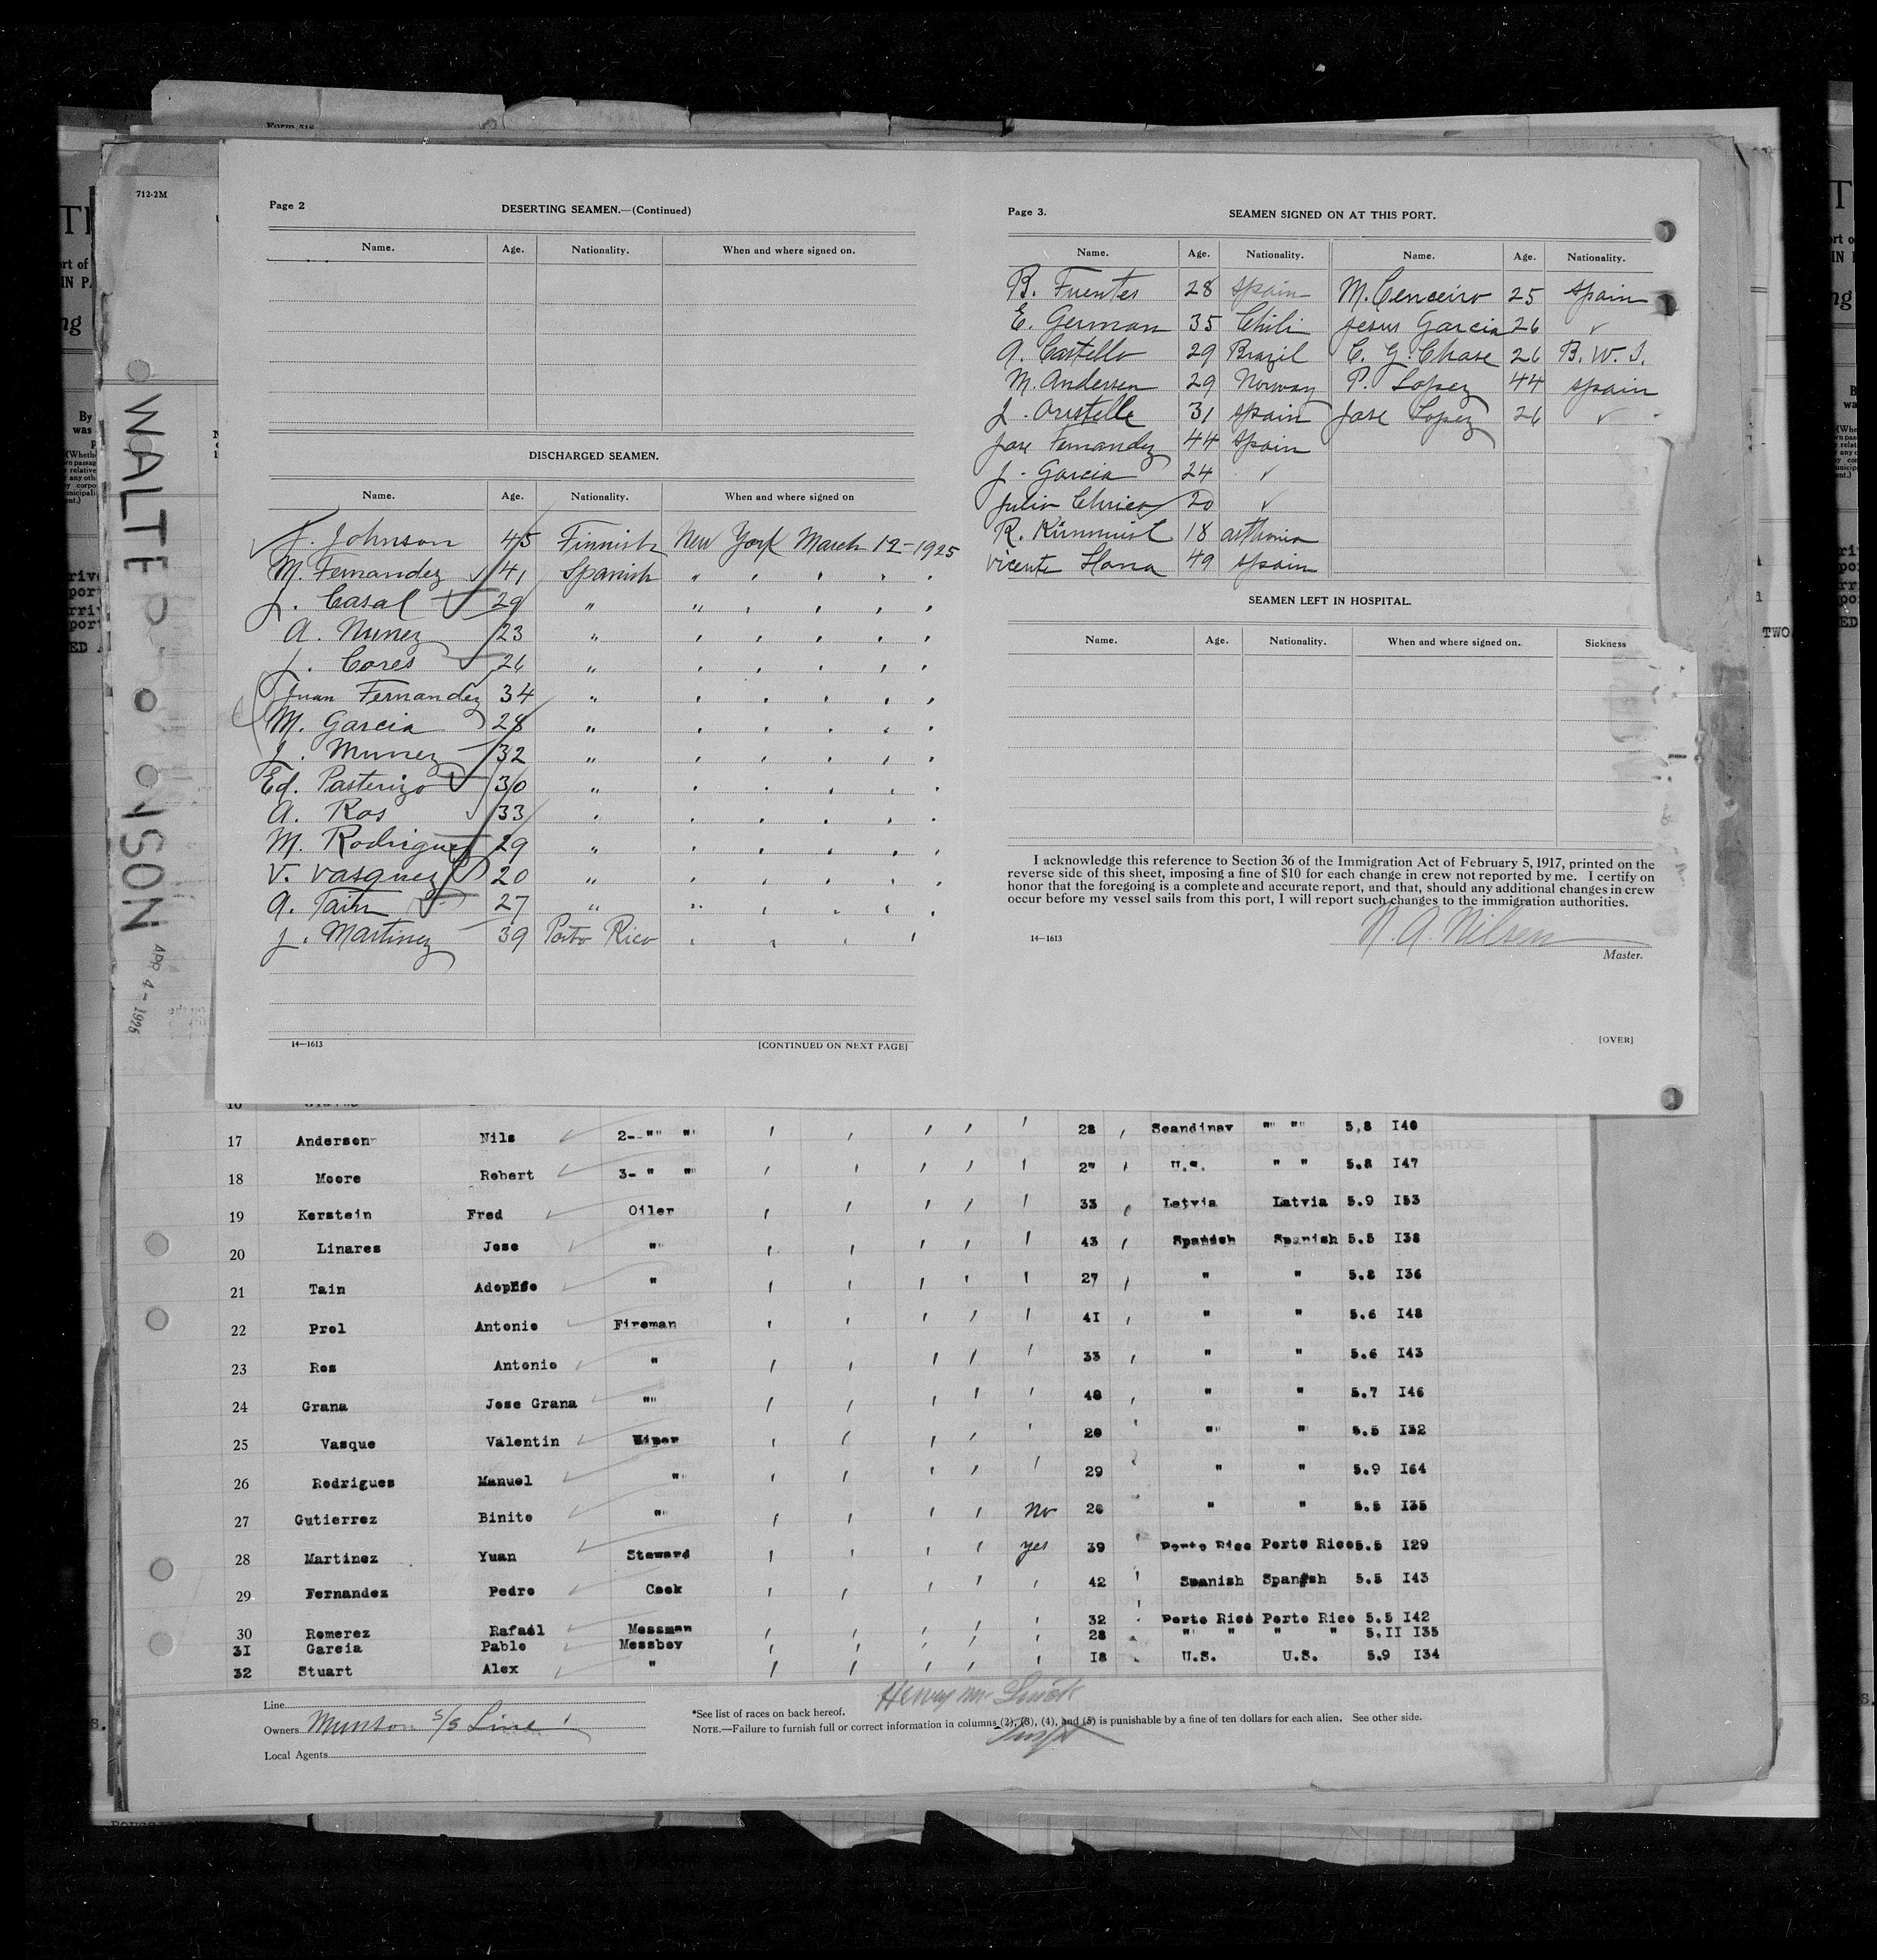 712-2M
WALTER D. NOISON
APR 4 - 1925
Page 2
DESERTING SEAMEN.—(Continued)
Name. Age. Nationality. When and where signed on.
DISCHARGED SEAMEN.
Name. Age. Nationality. When and where signed on
J. Johnson 45 Finnish New York March 12-1925
M. Fernandez 41 Spanish " " " " "
J. Casal 29 " " " " " "
A. Nunez 23 " " " " " "
J. Cores 26 " " " " " "
Juan Fernandez 34 " " " " " "
M. Garcia 28 " " " " " "
J. Munez 32 " " " " " "
Ed. Pasterizo 30 " " " " " "
A. Ros 33 " " " " " "
M. Rodriguez 29 " " " " " "
V. Vasquez 20 " " " " " "
A. Tain 27 " " " " " "
J. Martinez 39 Porto Rico " " " "
14—1613
[CONTINUED ON NEXT PAGE]
Page 3.
SEAMEN SIGNED ON AT THIS PORT.
Name. Age. Nationality. Name. Age. Nationality.
B. Fuentes 28 Spain M. Cenceiro 25 Spain
E. German 35 Chili Jesus Garcia 26 ✓
A. Castello 29 Brazil C. G. Chase 26 B. W. I.
M. Andersen 29 Norway P. Lopez 44 Spain
J. 31 Spain Jose Lopez 26 ✓
Jose Fernandez 44 Spain
J. Garcia 24 ✓
Julio 20 ✓
R. 18
Vicente 49 Spain
SEAMEN LEFT IN HOSPITAL.
Name. Age. Nationality. When and where signed on. Sickness
I acknowledge this reference to Section 36 of the Immigration Act of February 5, 1917, printed on the
reverse side of this sheet, imposing a fine of $10 for each change in crew not reported by me. I certify on
honor that the foregoing is a complete and accurate report, and that, should any additional changes in crew
occur before my vessel sails from this port, I will report such changes to the immigration authorities.
N. A. Nilsen
14—1613
Master.
[OVER]
17 Anderson Nils 2- " " 28 Scandinav " " 5,8 I40
18 Moore Robert 3- " " 27 U.S. " " 5.8 I47
19 Kerstein Fred Oiler 33 Latvia Latvia 5.9 I53
20 Linares Jose " 43 Spanish Spanish 5.5 I38
21 Tain " 27 " " 5.8 I36
22 Prol Antonio Fireman 4I " " 5.6 I48
23 Ros Antonio " 33 " " 5.6 I43
24 Grana Jose Grana " 40 " " 5.7 I46
25 Vasque Valentin Wiper 20 " " 5.5 I32
26 Rodrigues Manuel " 29 " " 5.9 I64
27 Gutierrez Binito " No 26 " " 5.5 I35
28 Martinez Yuan Steward yes 39 Porto Rico Porto Rico 5.5 I29
29 Fernandez Pedro Cook 42 Spanish Spanish 5.5 I43
30 Romerez Rafael Messman 32 Porto Rico Porto Rico 5.5 I42
3I Garcia Pablo Messboy 28 " " " " 5.II I35
32 Stuart Alex " I8 U.S. U.S. 5.9 I34
Line
Owners Munson S/S Line
Local Agents
*See list of races on back hereof.
NOTE.—Failure to furnish full or correct information in columns (2), (3), (4), and (5) is punishable by a fine of ten dollars for each alien. See other side.